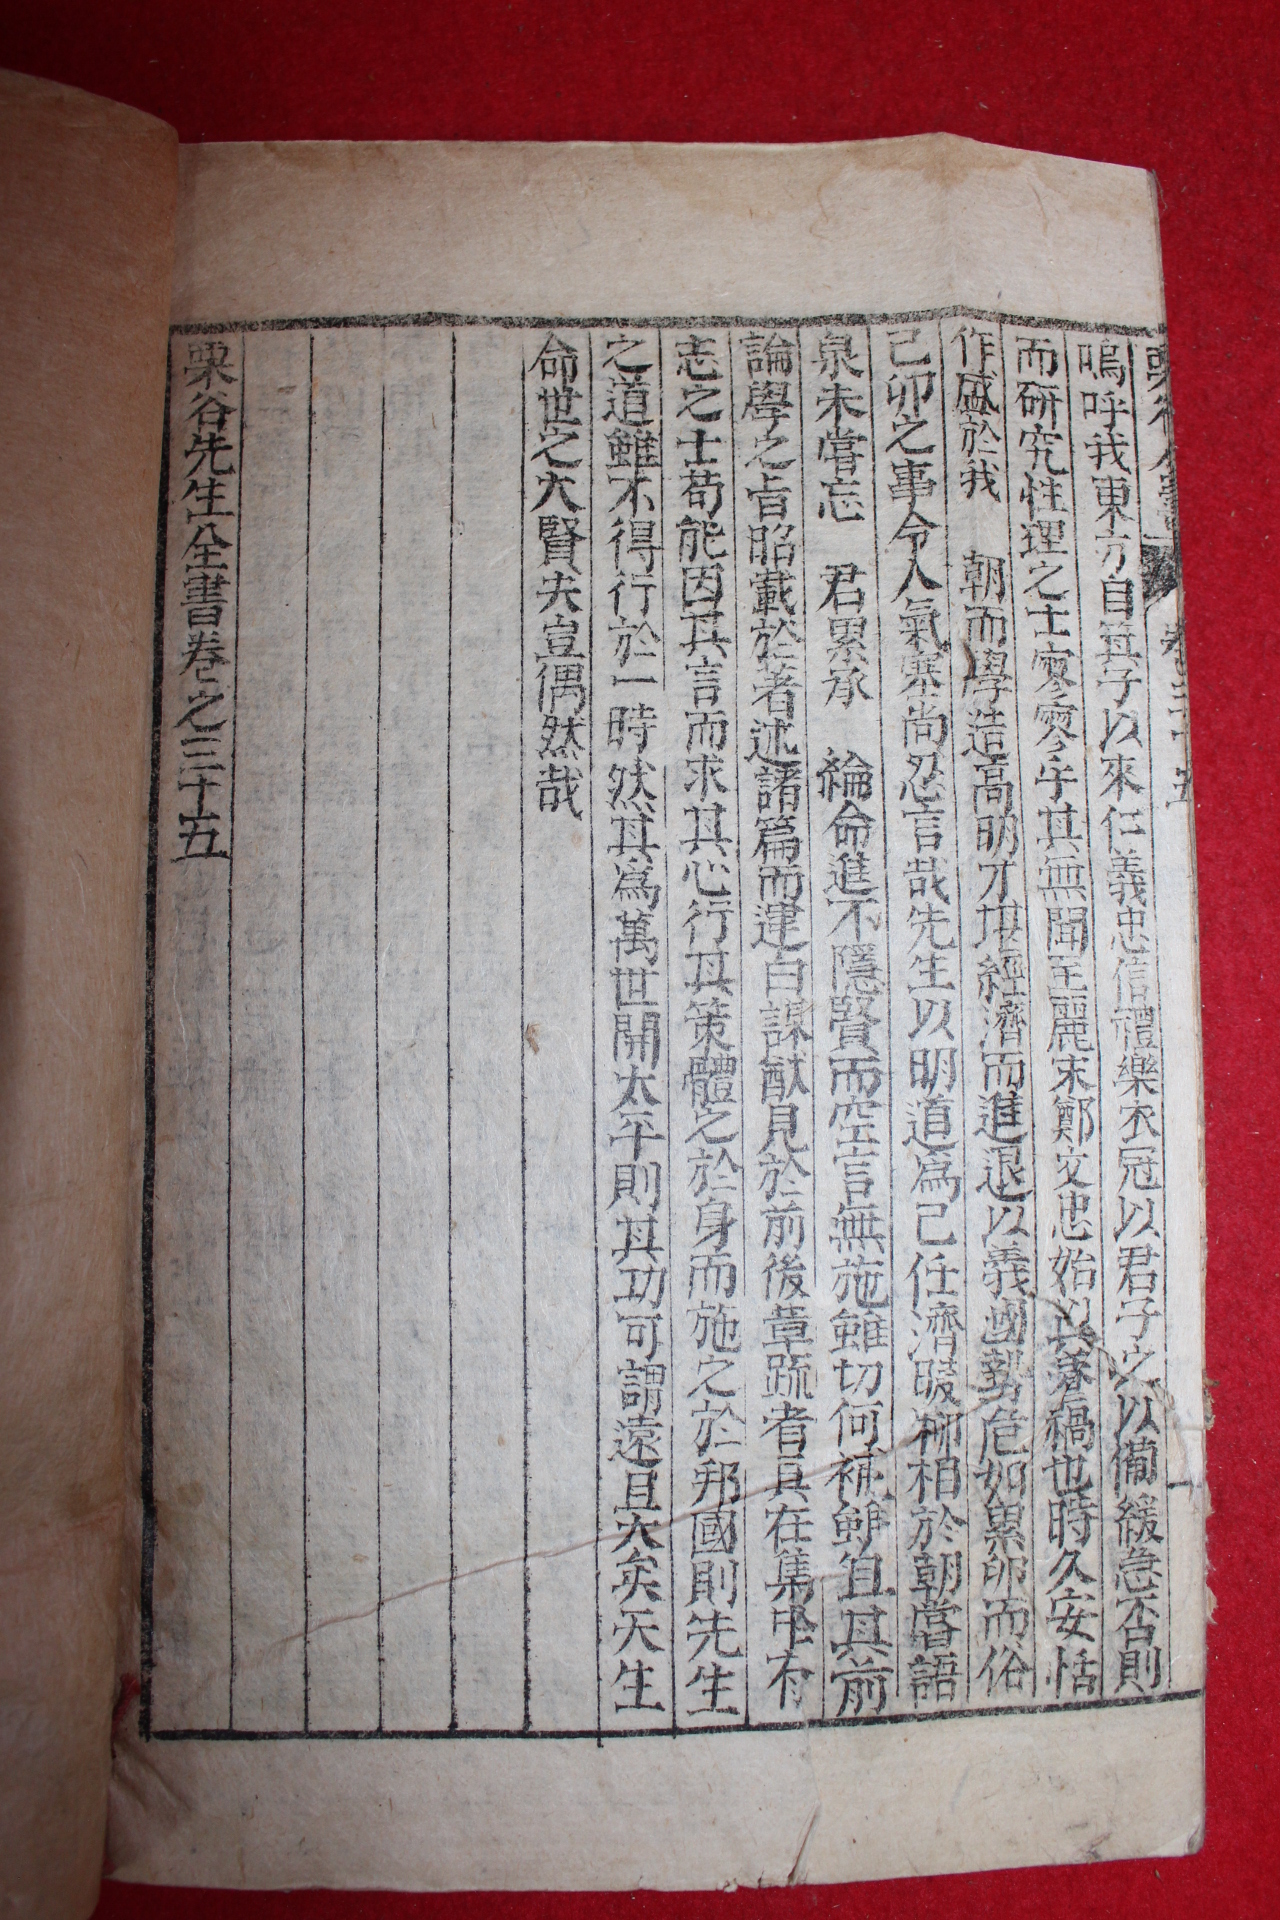 嗚呼我東方自箕子以來仁義忠信禮樂衣冠以君子之以備緩急否則
而研究性理之士寥寥乎其無聞至麗末鄭文忠始以其著禍也時久安恬
作盛於我 朝而學造高明才堪經濟而進退以義國勢危如累卵而俗
己卯之事令人氣塞尚忍言哉先生以明道爲己任濟時柳相於朝嘗語
泉未嘗忘 君累承 綸命進不隱賢而空言無施雖切何補雖箚其前
論學之旨昭載於著述諸篇而建白謀猷見於前後章疏者具在集中有
志之士苟能因其言而求其心行其策體之於身而施之於邦國則先生
之道雖不得行於一時然其爲萬世開太平則其功可謂遠且大矣天生
命世之大賢夫豈偶然哉
栗谷先生全書卷之三十五